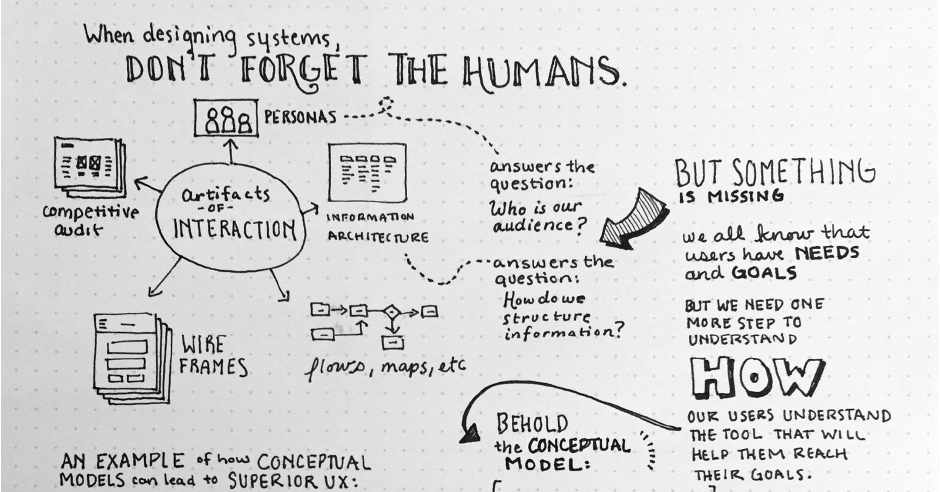 When designing systems,
DON'T FORGET THE HUMANS.
PERSONAS
competitive
audit
artifacts
-OF-
INTERACTION
INFORMATION
ARCHITECTURE
WIRE
FRAMES
flows, maps, etc
answers the
question:
Who is our
audience?
answers the
question:
How do we
structure
information?
BUT SOMETHING
IS MISSING
we all know that
users have NEEDS
and GOALS
BUT WE NEED ONE
MORE STEP TO
UNDERSTAND
HOW
OUR USERS UNDERSTAND
THE TOOL THAT WILL
HELP THEM REACH
THEIR GOALS.
BEHOLD
the CONCEPTUAL
MODEL:
AN EXAMPLE of how CONCEPTUAL
MODELS can lead to SUPERIOR UX: